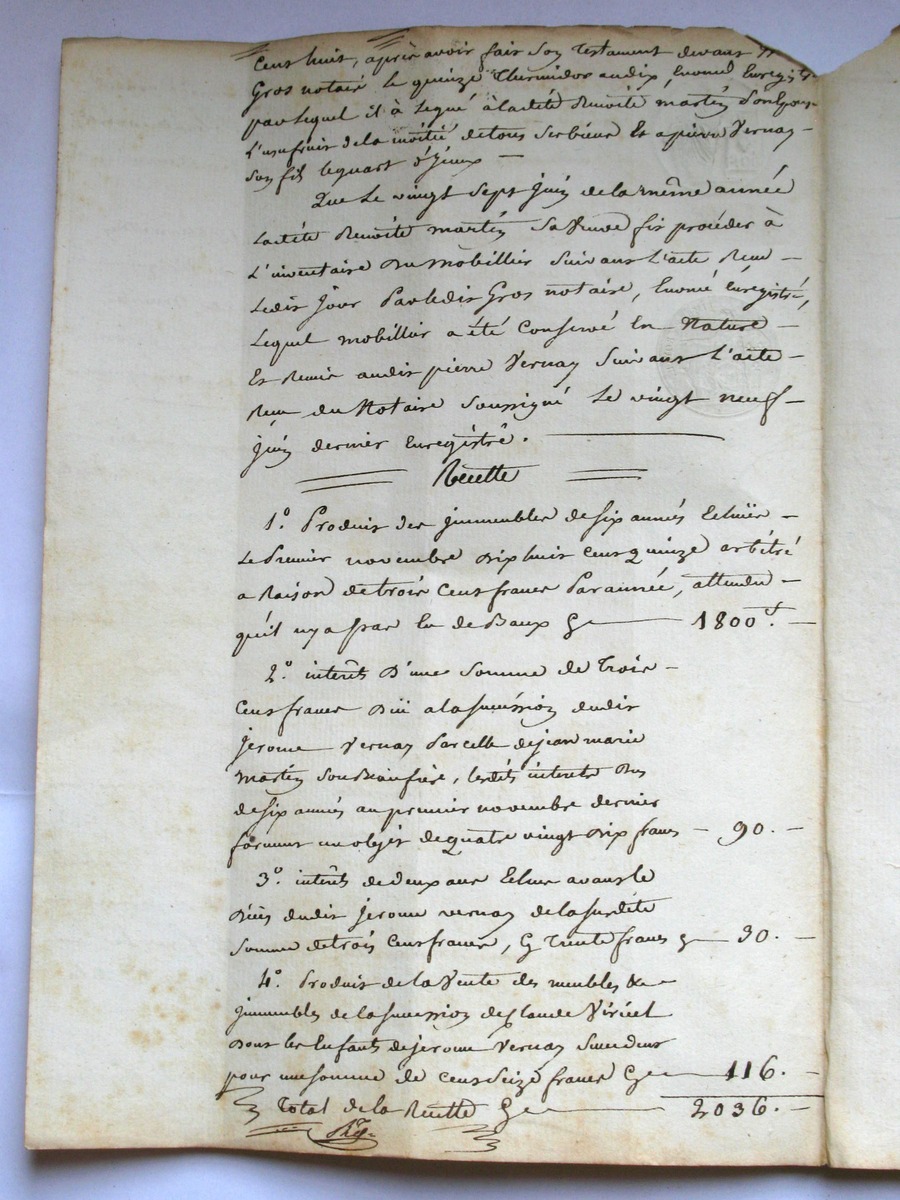 Cens huit, après avoir fais son testament devans
Gros notaire le quinze Thermidor an dix, enregistré
par lequel il à Legué à la dite Benoite martin son Epouse
L'usufruis de la moitié de tous ses biens Et a pierre Vernay
Son fils le quart d'Iceux —
Que Le vingt Sept juin de la même année
La dite Benoite martin Sa Veuve fis procéder à
L'inventaire Du Mobillier Suivans L'acte Recu —
Ledis Jour Par ledis Gros notaire, Enregistré,
Lequel mobillier a été Conservé En Nature —
Et Remis audis pierre Vernay Suivans L'acte —
Recu du Notaire Soussigné Le vingt neuf —
juin dernier Enregistré.
Recette
1.º Produis des jmmeubles de Six années Echües —
Le Premier novembre Dix huis Cens quinze arbitré
a Raison de trois Cens francs Par année, attendu —
qu'il ny a pas Eu de Baux Cy — 1800.f —
2.º intérêts D'une Somme de Trois —
Cens francs Dûe a la Succéssion dudis
Jerome Vernay Par celle de jean marie
Martin Son Beaufrère, lesdits intérêts Dus
de Six années au premier novembre dernier
formans un objet de quatre vingt Dix francs — 90. —
3.º intérêts de deux ans Echus avans le
Décès dudis Jerome vernay de la Susdite
Somme de trois Cens francs, Cy Trente francs Cy — 30. —
4.º Produis de la Vente des meubles &
jmmeubles de la Succession de Claude Viricel
Dous les Enfants de jerome Vernay
pour une somme de Cens Seize francs Cy — 116. —
Total de la Recette Cy — 2036. —